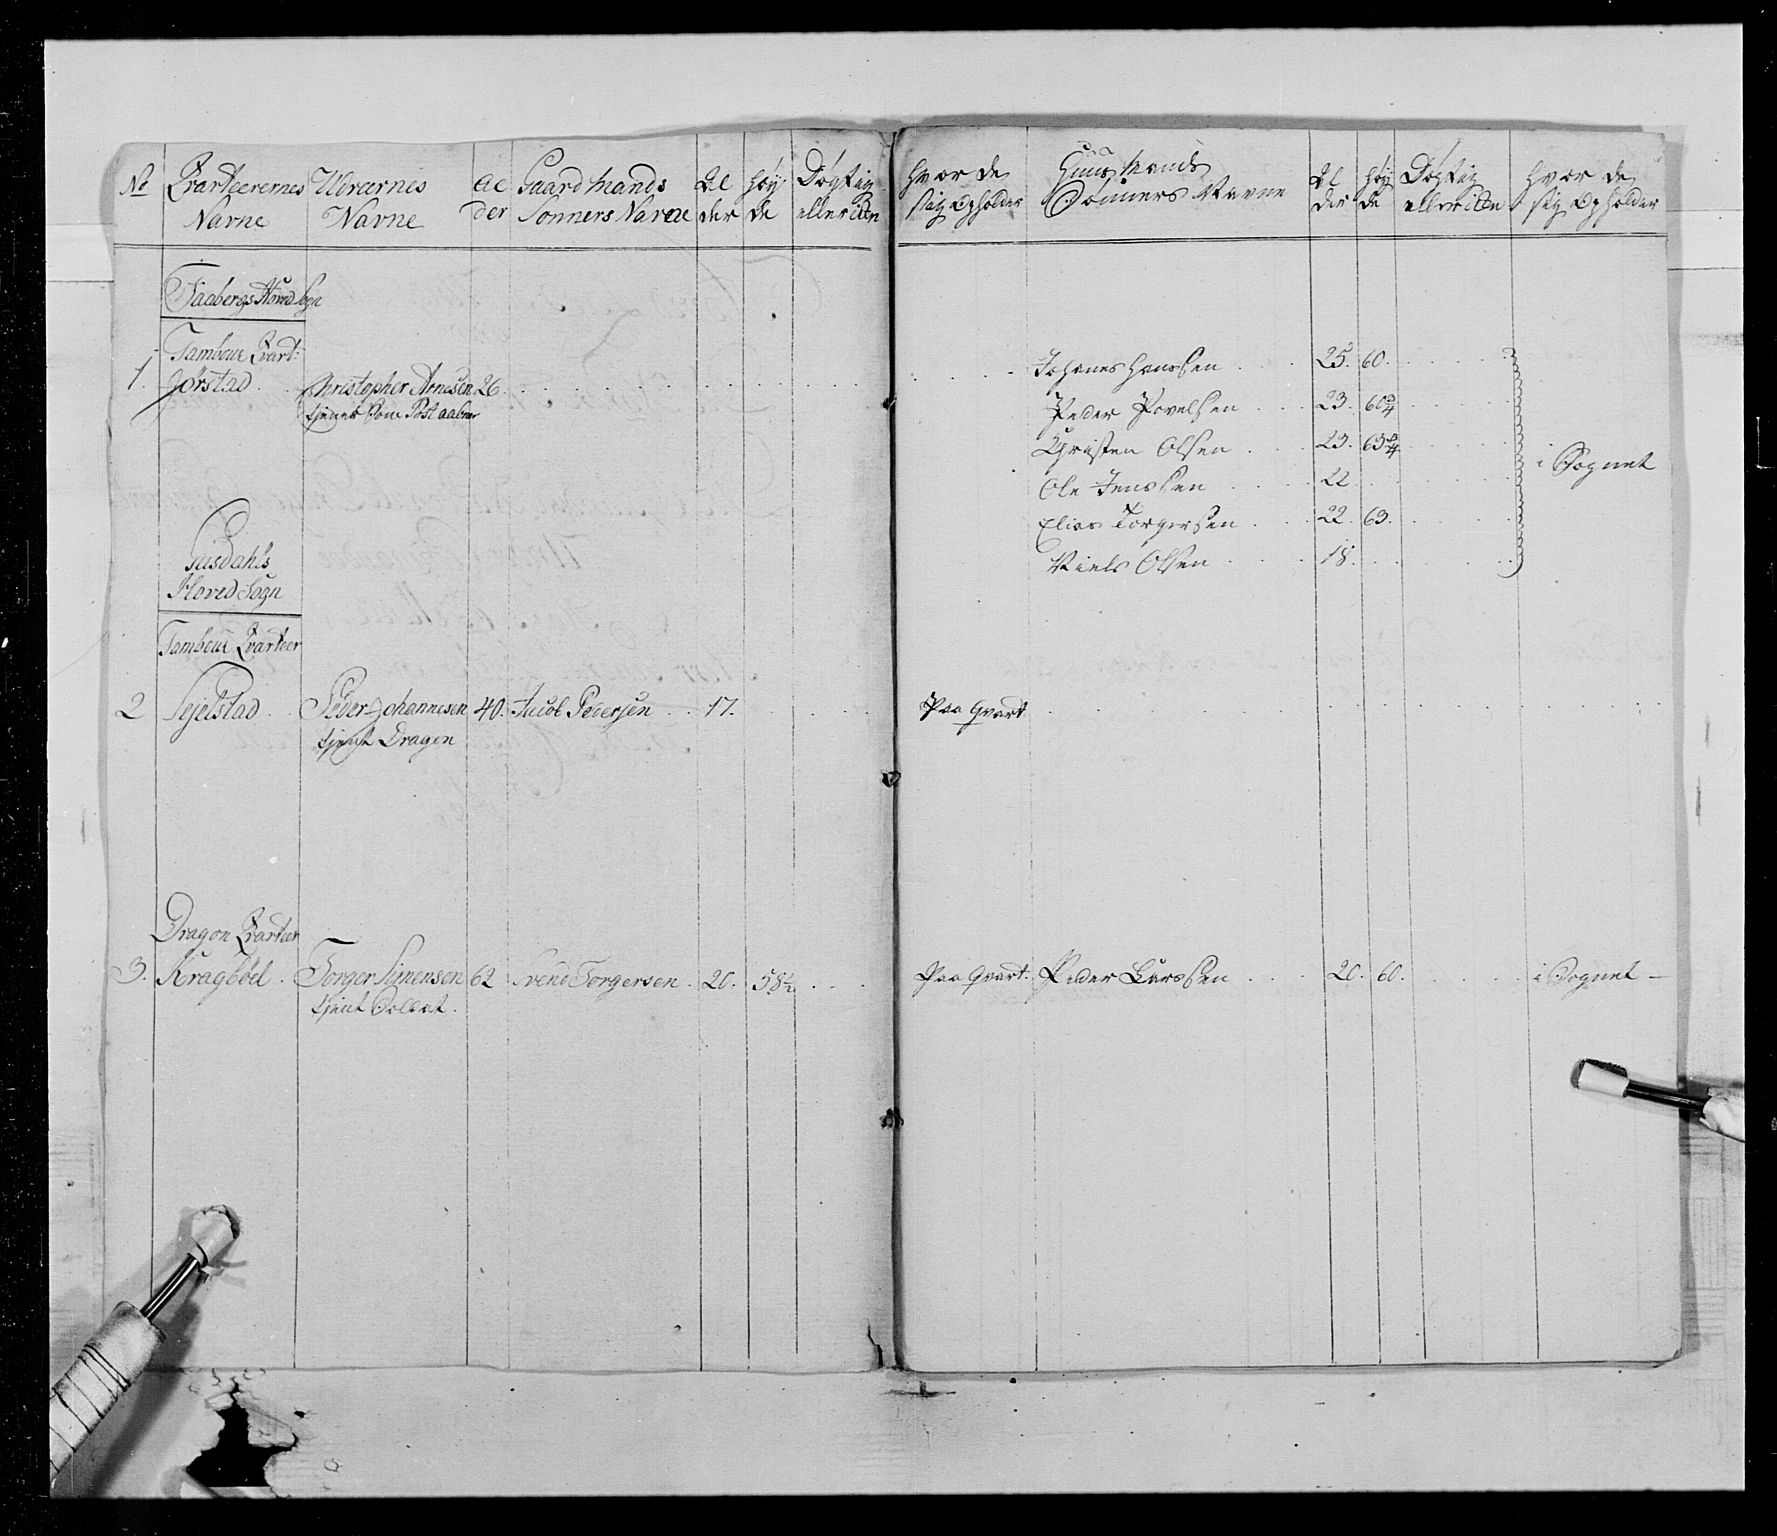 No Qvarteerernes Navne Werernes Navne Al der Gaardmands Sønners Navne Al der høy de Døgtig eller iken
hvor de sig opholder Huus Mands Sønners Navne Al der høy de Døgtig eller iken hvor de sig opholder
Faabergs Hoved Sogn
Tambour Qvart:
1. Jørstad. Christopher Arnesen 26.
tjener Som Post aabner
Johanes Hanssen 25. 60.
Peder Povelsen 23. 60 3/4
Christen Olsen 23. 63 3/4
i Sognet
Ole Jenssen 22
Elias Torgersen 22. 63.
Niels Olsen 18.
Gusdahls
Hoved Sogn
Tambour Qvarteer
2 Sejelstad. Peder Johannesen 40. Jacob Pedersen 17. Paa Qvart
tjent Dragon
Dragon Qvarteer
3. Kragbøel. Torger Simensen 62 Svend Torgersen. 20. 58 1/2 Paa Qvart. Peder Larssen 20. 60. i Sognet
tjent Soldat.